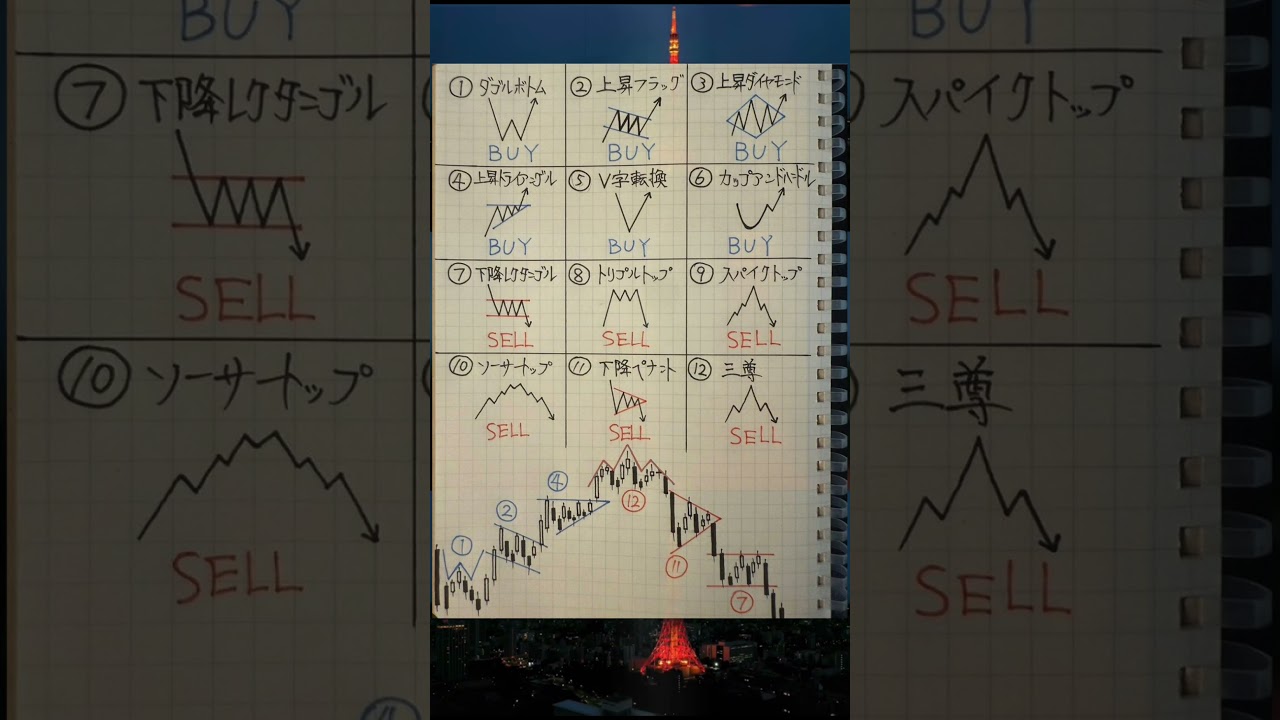 ① ダブルボトム
BUY
② 上昇フラッグ
BUY
③ 上昇ダイヤモンド
BUY
④ 上昇トライアングル
BUY
⑤ V字転換
BUY
⑥ カップアンドハンドル
BUY
⑦ 下降レクタングル
SELL
⑧ トリプルトップ
SELL
⑨ スパイクトップ
SELL
⑩ ソーサートップ
SELL
⑪ 下降ペナント
SELL
⑫ 三尊
SELL
①
②
④
⑫
⑪
⑦
BUY
⑦ 下降レクタングル
SELL
⑩ ソーサートップ
SELL
BUY
スパイクトップ
SELL
三尊
SELL